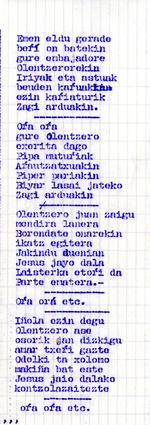 Emen eldu gerade
berri on batekin
gure enbajadore
Olentzerorekin
Iriyak eta astuak
beuden
ezin kafiaturik
Zagi arduakin.
Ofa ofa
gure Olentzero
exerita dago
Pipa mutufiak
Afautzatxuakin
Piper pariakin
Biyar lasai jateko
Zagi arduakin
Olentzero juan zaigu
mendira lanera
Borondate onarekin
ikatz egitera
Jakindu duenian
Jesus jayo dala
Laisterka etofi da
Parte ematera.-
Ofa ofa etc.
Iñola ezin degu
Olentzero ase
osorik jan dizkigu
amar txefi gazte
Odolki ta xolomo
makiña bat este
Jesus jaio dalako
kontzolazaitezte
ofa ofa etc.